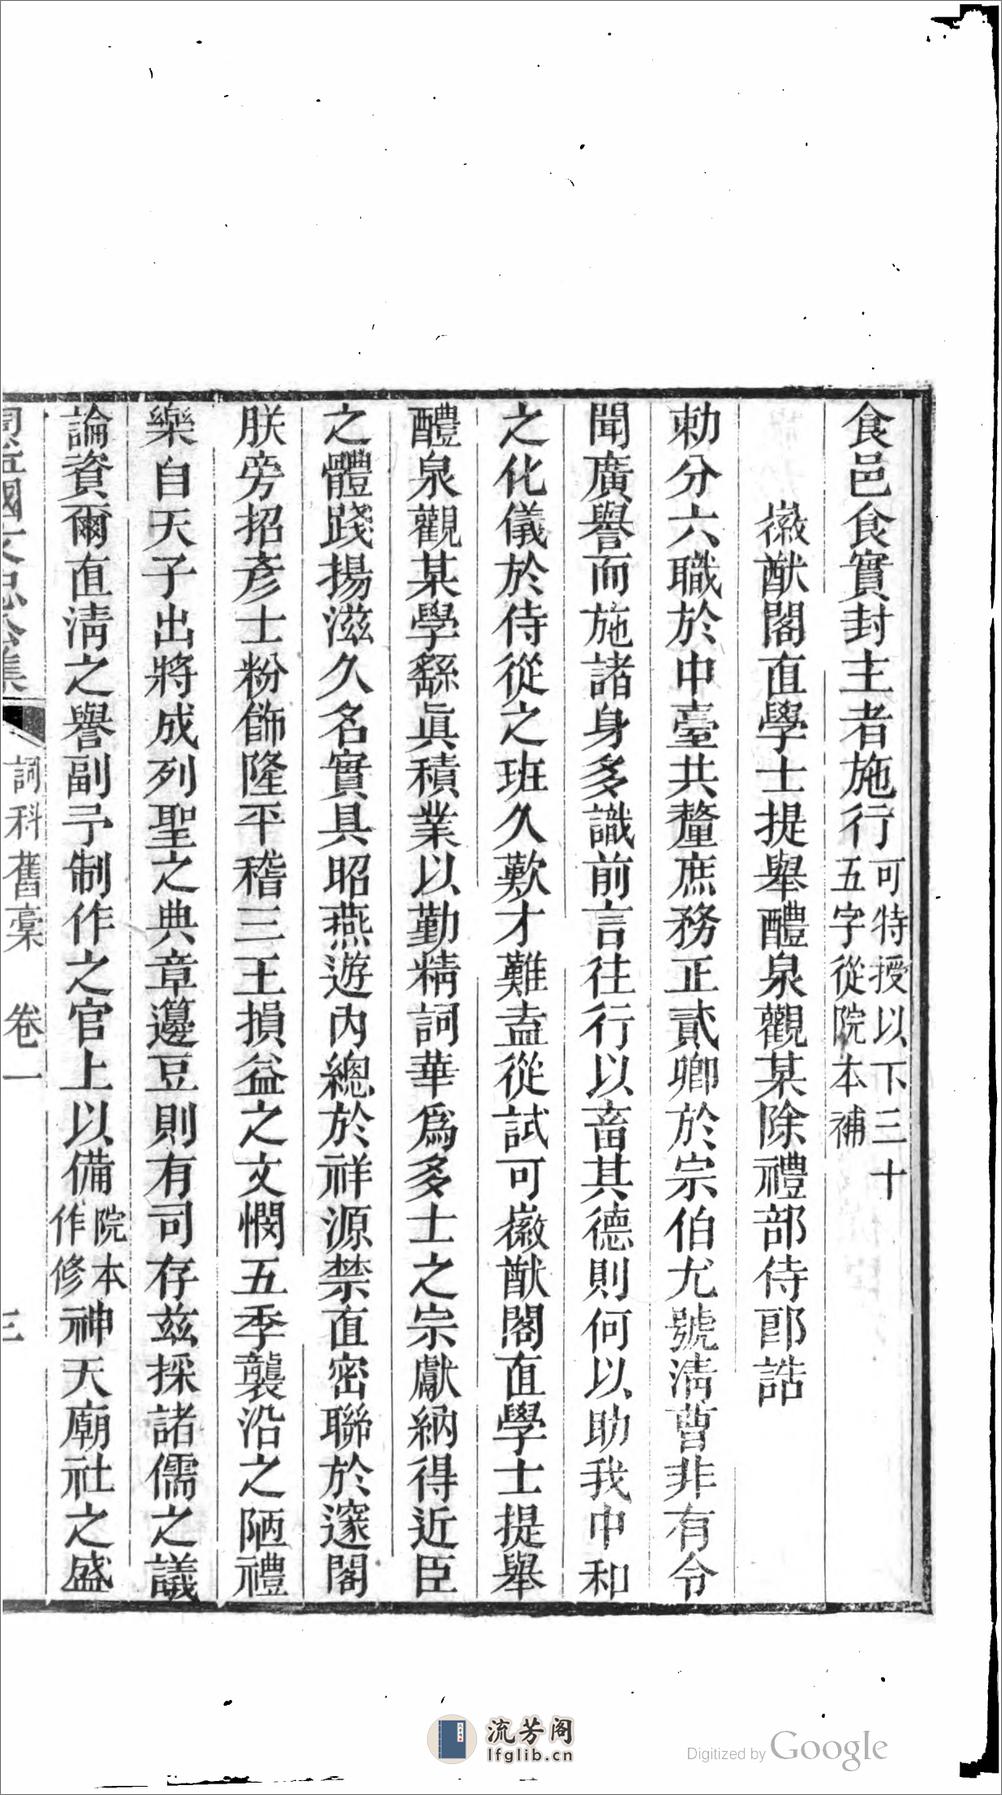 食邑食實封主者施行可特授以下三十五字從院本補
徽猷閣直學士提舉醴泉觀某除禮部侍郎誥
勅分六職於中臺共釐庶務正貳卿於宗伯尤號清曹非有令
聞廣譽而施諸身多識前言往行以畜其德則何以助我中和
之化儀於侍從之班久歎才難盍從試可徽猷閣直學士提舉
醴泉觀某學繇眞積業以勤精詞華爲多士之宗獻納得近臣
之體踐揚滋久名實具昭燕遊内總於祥源禁直密聯於邃閣
朕旁招彥士粉飾隆平稽三王損益之文憫五季襲沿之陋禮
樂自天子出將成列聖之典章籩豆則有司存兹採諸儒之議
論資爾直清之譽副予制作之官上以備院本作修神天廟社之盛
周益國文忠公集 詞科舊稾 卷一 三
流芳阁
lfglib.cn
Digitized by Google